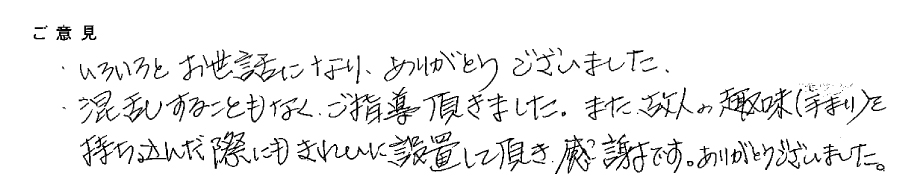 ご意見
・いろいろと お世話になり、ありがとう ございました。
・混乱することもなく、ご指導 頂きました。また、故人の 趣味(手まり)を
持ち込んだ際にも きれいに 設置して頂き、感謝です。ありがとうございました。